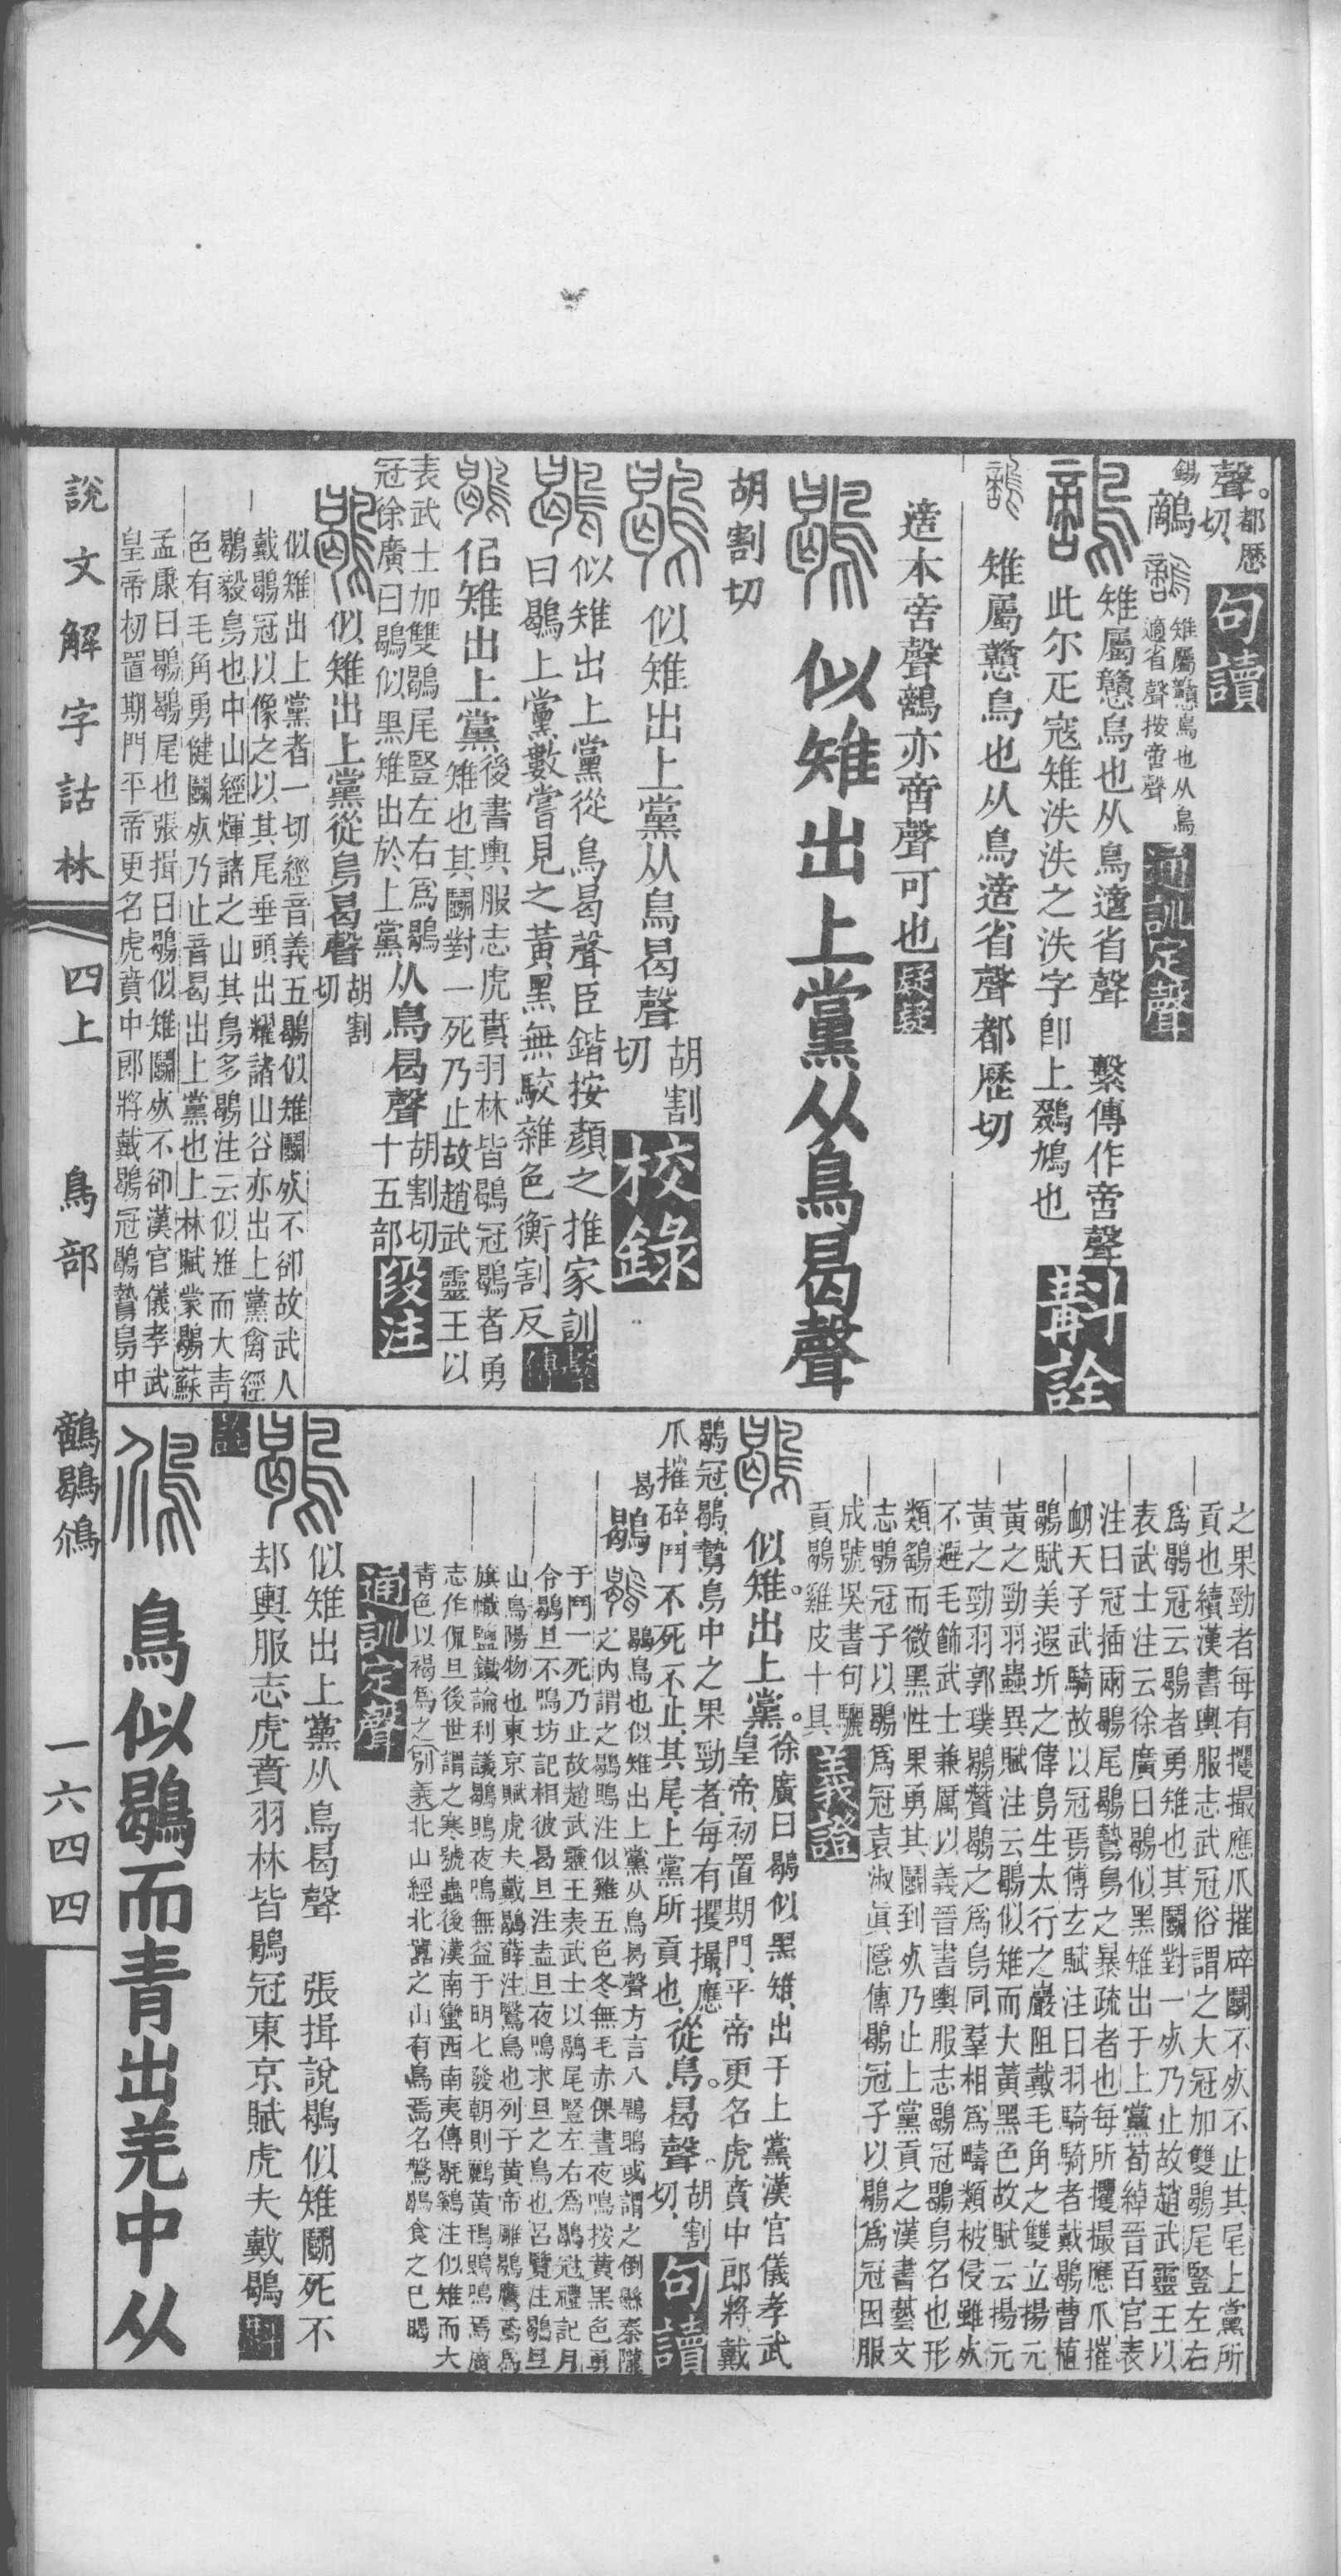 聲。都歷切、句讀
錫 鷸 雉屬戇鳥也从鳥
適省聲按啻聲 通訓定聲
雉屬戇鳥也从鳥適省聲　繫傳作啻聲
此尔疋寇雉泆泆之泆字卽上鵽鳩也 斠詮
雉屬戇鳥也从鳥適省聲都歷切
適本啻聲鷸亦啻聲可也
似雉出上黨从鳥曷聲
胡割切
似雉出上黨从鳥曷聲胡割切 校錄
似雉出上黨從鳥曷聲臣鍇按顏之推家訓
曰鶡上黨數嘗見之黃黑無駮雜色衡割反 繫傳
佀雉出上黨後書輿服志虎賁羽林皆鶡冠鶡者勇
雉也其鬬對一死乃止故趙武靈王以
表武士加雙鶡尾豎左右爲鶡
冠徐廣曰鶡似黑雉出於上黨从鳥曷聲胡割切十五部 段注
似雉出上黨從鳥曷聲胡割切
似雉出上黨者一切經音義五鶡似雉鬬㱙不卻故武人
戴鶡冠以像之以其尾垂頭出耀諸山谷亦出上黨禽經
鶡毅鳥也中山經煇諸之山其鳥多鶡注云似雉而大靑
色有毛角勇健鬬㱙乃止音曷出上黨也上林賦蒙鶡蘇
孟康曰鶡鶡尾也張揖曰鶡似雉鬬㱙不卻漢官儀孝武
皇帝初置期門平帝更名虎賁中郎將戴鶡冠鶡鷙鳥中
之果勁者每有攫撮應爪摧碎鬬不㱙不止其尾上黨所
貢也續漢書輿服志武冠俗謂之大冠加雙鶡尾豎左右
爲鶡冠云鶡者勇雉也其鬬對一㱙乃止故趙武靈王以
表武士注云徐廣曰鶡似黑雉出于上黨荀綽晉百官表
注曰冠插兩鶡尾鶡鷙鳥之暴疏者也每所攫撮應爪摧
衂天子武騎故以冠焉傅玄賦注曰羽騎騎者戴鶡曹植
鶡賦美遐圻之偉鳥生太行之巖阻戴毛角之雙立揚元
黃之勁羽蟲異賦注云鶡似雉而大黃黑色故賦云揚元
黃之勁羽郭璞鶡贊鶡之爲鳥同羣相爲疇類被侵雖㱙
不避毛飾武士兼厲以義晉書輿服志鶡冠鶡鳥名也形
類鷂而微黑性果勇其鬬到㱙乃止上黨貢之漢書藝文
志鶡冠子以鶡爲冠袁淑眞隱傳鶡冠子以鶡爲冠因服
成號吳書句驪
貢鶡雞皮十具 義證
似雉。出上黨。徐廣曰鶡似黑雉、出于上黨漢官儀孝武
皇帝、初置期門、平帝更名虎賁中郎將、戴
鶡冠、鶡、鷙鳥中之果勁者、每有攫撮、應
爪摧碎、鬥不死不止、其尾、上黨所貢也、從鳥。曷聲。胡割切、句讀
曷 鶡 鶡鳥也似雉出上黨从鳥曷聲方言八鴠鴠或謂之倒縣秦隴
之內謂之鶡鴠注似雞五色冬無毛赤倮晝夜鳴按黃黑色勇
于鬥一死乃止故趙武靈王表武士以鶡尾豎左右爲鶡冠禮記月
令鶡旦不鳴坊記相彼曷旦注盍旦夜鳴求旦之鳥也呂覽注鶡旦
山鳥陽物也東京賦虎夫戴鶡薛注鷙鳥也列子黃帝雕鶡鷹鳶爲
旗幟鹽鐵論利議鶡鴠夜鳴無益于明七發朝則鸝黃鳱鴠鳴焉廣
志作侃旦後世謂之寒號蟲後漢南蠻西南夷傳毼雞注似雉而大
靑色以褐爲之別義北山經北嚻之山有鳥焉名鷔鶥食之已暍
通訓定聲
似雉出上黨从鳥曷聲　張揖說鶡似雉鬬死不
却輿服志虎賁羽林皆鶡冠東京賦虎夫戴鶡 斠詮
鳥似鶡而青出羌中从
說文解字詁林　四上　鳥部　鷸鶡鳻　一六四四